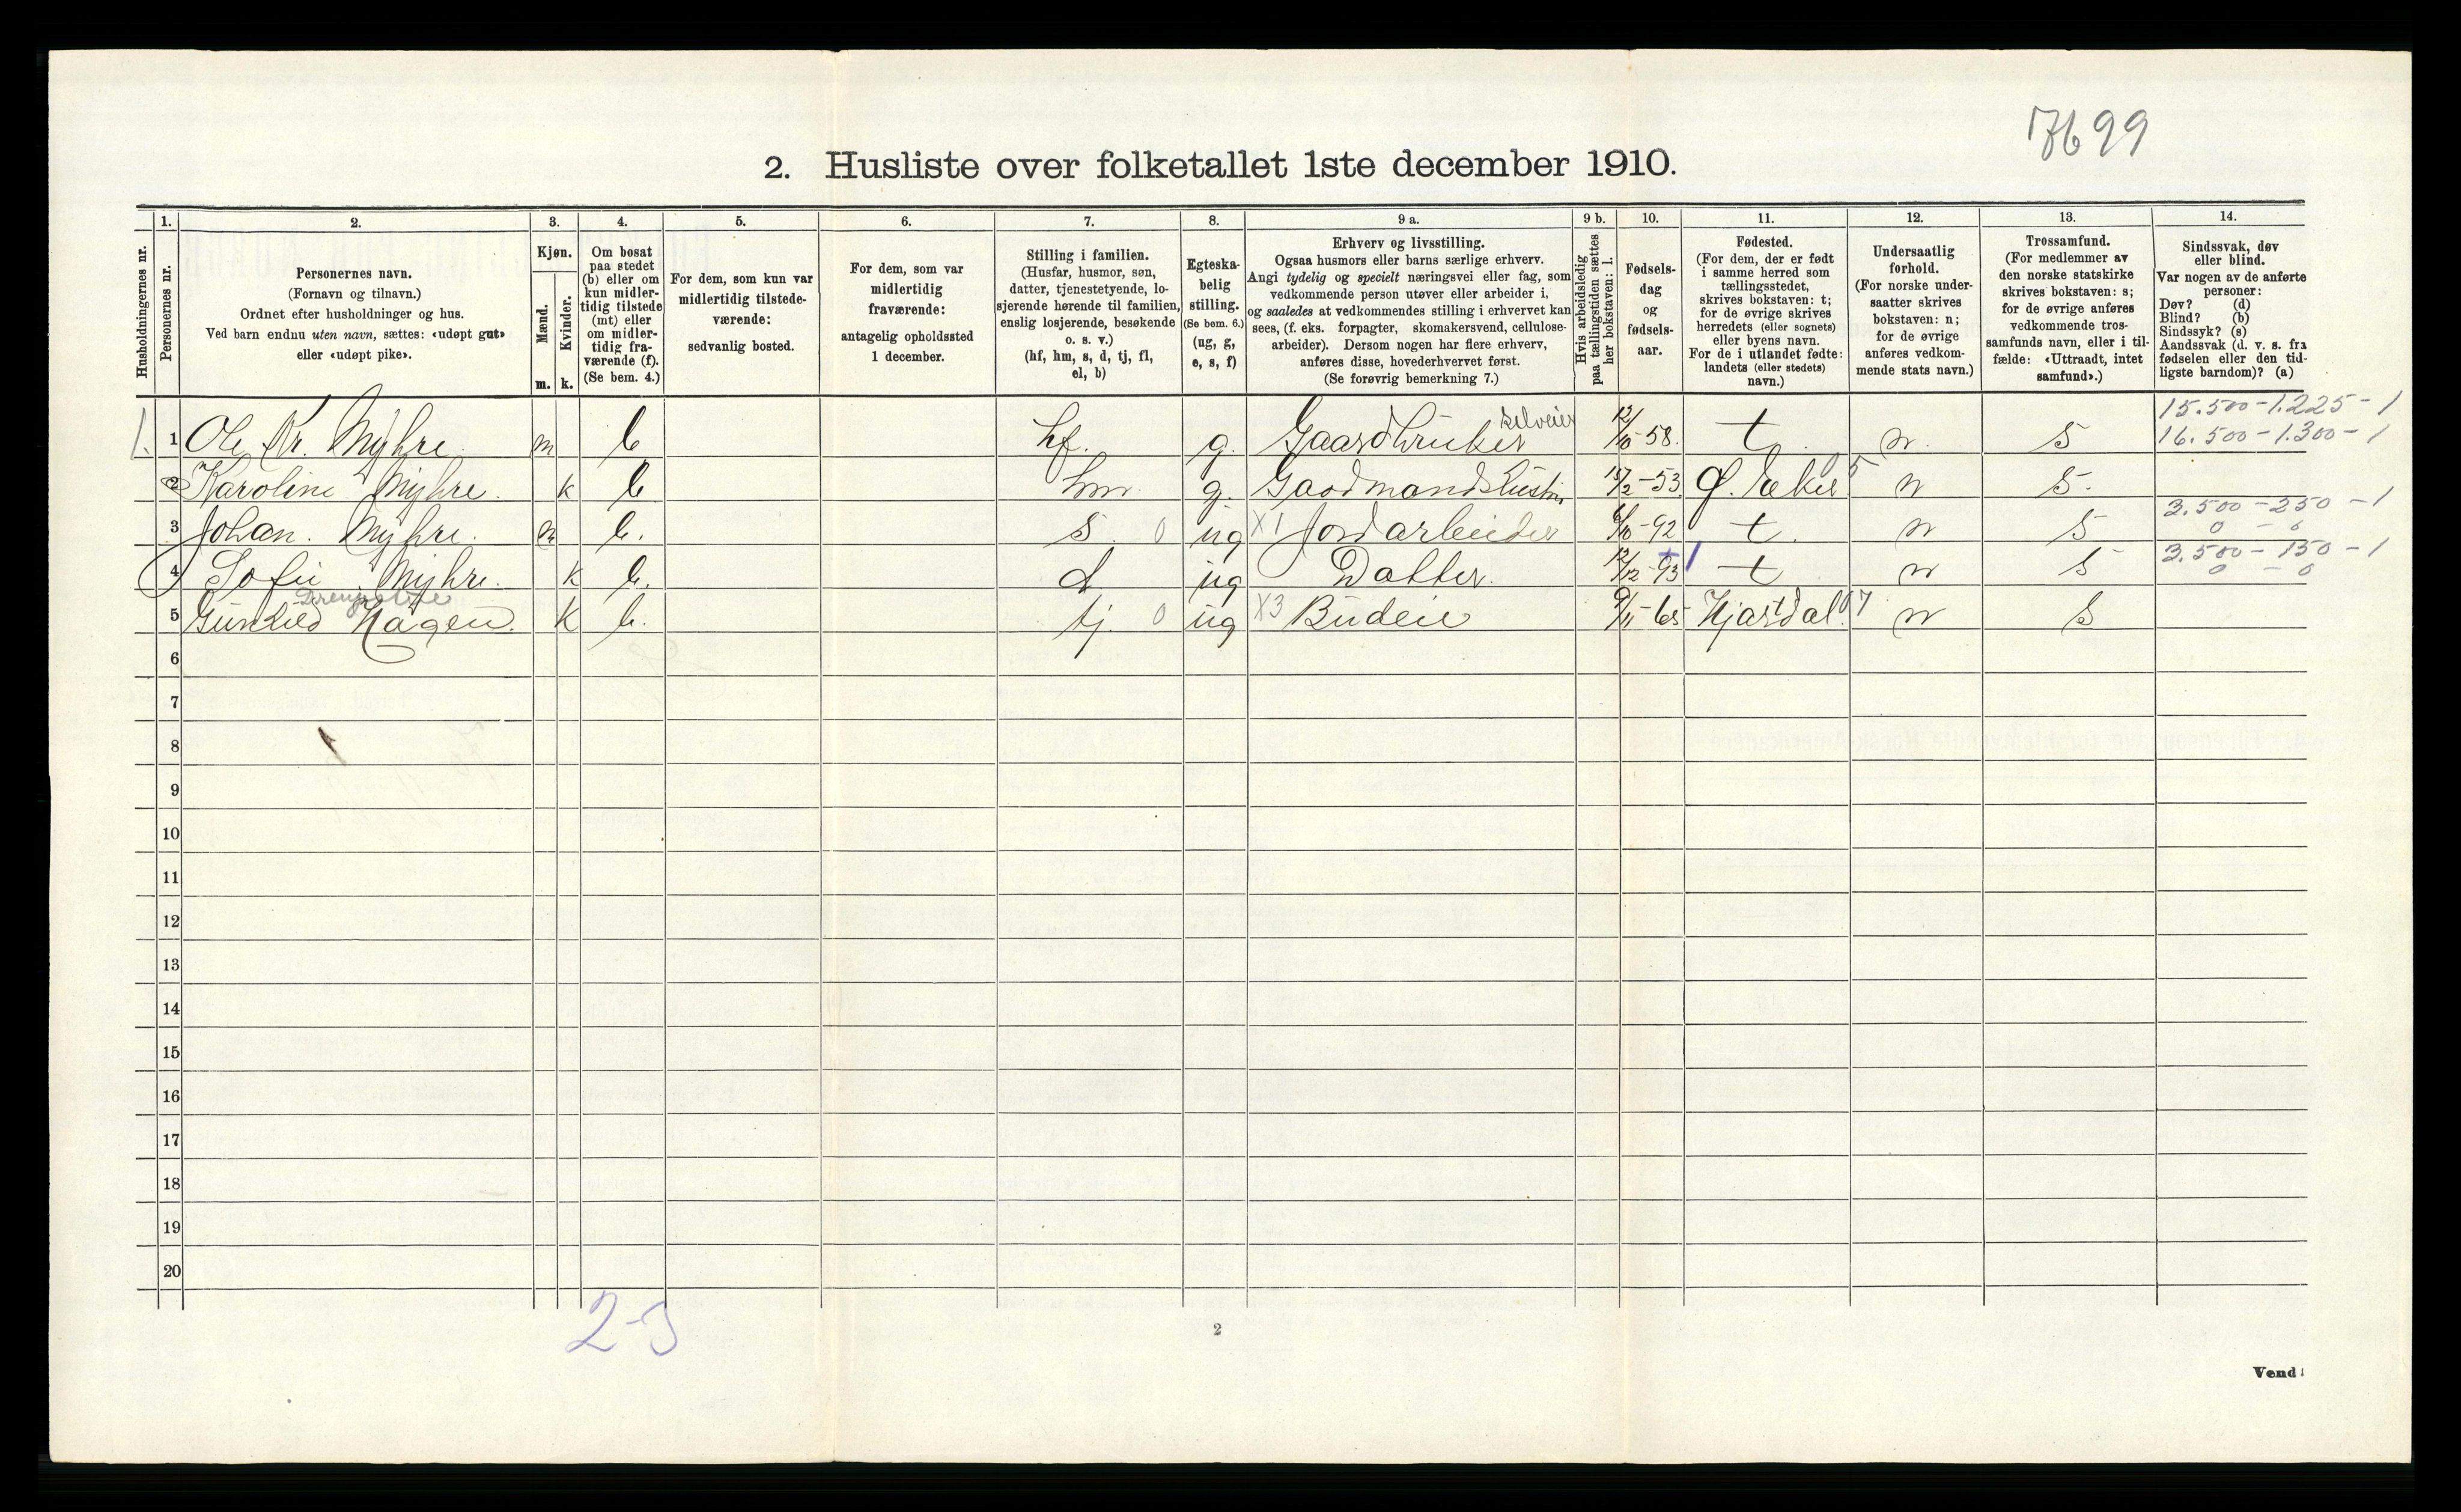 7699
2. Husliste over folketallet 1ste december 1910.
Husholdningernes nr.
1.
Personernes nr.
2.
Personernes navn.
(Fornavn og tilnavn.)
Ordnet efter husholdninger og hus.
Ved barn endnu uten navn, sættes: «udøpt gut»
eller «udøpt pike».
3.
Kjøn.
Mænd.
Kvinder.
m. k.
4.
Om bosat
paa stedet
(b) eller om
kun midler-
tidig tilstede
(mt) eller
om midler-
tidig fra-
værende (f).
(Se bem. 4.)
5.
For dem, som kun var
midlertidig tilstede-
værende:
sedvanlig bosted.
6.
For dem, som var
midlertidig
fraværende:
antagelig opholdssted
1 december.
7.
Stilling i familien.
(Husfar, husmor, søn,
datter, tjenestetyende, lo-
sjerende hørende til familien,
enslig losjerende, besøkende
o. s. v.)
(hf, hm, s, d, tj, fl,
el, b)
8.
Egteska-
belig
stilling.
(Se bem. 6.)
(ug, g,
e, s, f)
9 a.
Erhverv og livsstilling.
Ogsaa husmors eller barns særlige erhverv.
Angi tydelig og specielt næringsvei eller fag, som
vedkommende person utøver eller arbeider i,
og saaledes at vedkommendes stilling i erhvervet kan
sees, (f. eks. forpagter, skomakersvend, cellulose-
arbeider). Dersom nogen har flere erhverv,
anføres disse, hovederhvervet først.
(Se forøvrig bemerkning 7.)
9 b.
Hvis arbeidsledig
paa tællingstiden sættes
her bokstaven: l.
10.
Fødsels-
dag
og
fødsels-
aar.
11.
Fødested.
(For dem, der er født
i samme herred som
tællingsstedet,
skrives bokstaven: t;
for de øvrige skrives
herredets (eller sognets)
eller byens navn.
For de i utlandet fødte:
landets (eller stedets)
navn.)
12.
Undersaatlig
forhold.
(For norske under-
saatter skrives
bokstaven: n;
for de øvrige
anføres vedkom-
mende stats navn.)
13.
Trossamfund.
(For medlemmer av
den norske statskirke
skrives bokstaven: s;
for de øvrige anføres
vedkommende tros-
samfunds navn, eller i til-
fælde: «Uttraadt, intet
samfund».)
14.
Sindssvak, døv
eller blind.
Var nogen av de anførte
personer:
Døv? (d)
Blind? (b)
Sindssyk? (s)
Aandssvak (d. v. s. fra
fødselen eller den tid-
ligste barndom)? (a)
selveier 15.500-1.225-1
1. 1 Ole Kr. Myhre. m b hf. g. Gaardbruker 12/10-58. t n. s 16.500-1.300-1
2 Karoline Myhre. k b hm g. Gaardmandshustru 15/2-53 Ø. Eker 5 n s.
3.500-250-1
3 Johan. Myhre. m b. s. 0 ug X1 Jordarbeider 6/10-92 t. n s 0 - 0
3.500-150-1
4 Sofie Myhre. k b. d ug Datter. 12/12-93 t n s 0 - 0
5 Gunhild Hagen. k b. tj. 0 ug X3 Budeie 9/11-65 Hjartdal. 7 n s
6
7
8
9
10
11
12
13
14
15
16
17
18
19
20
2-3
2
Vend!